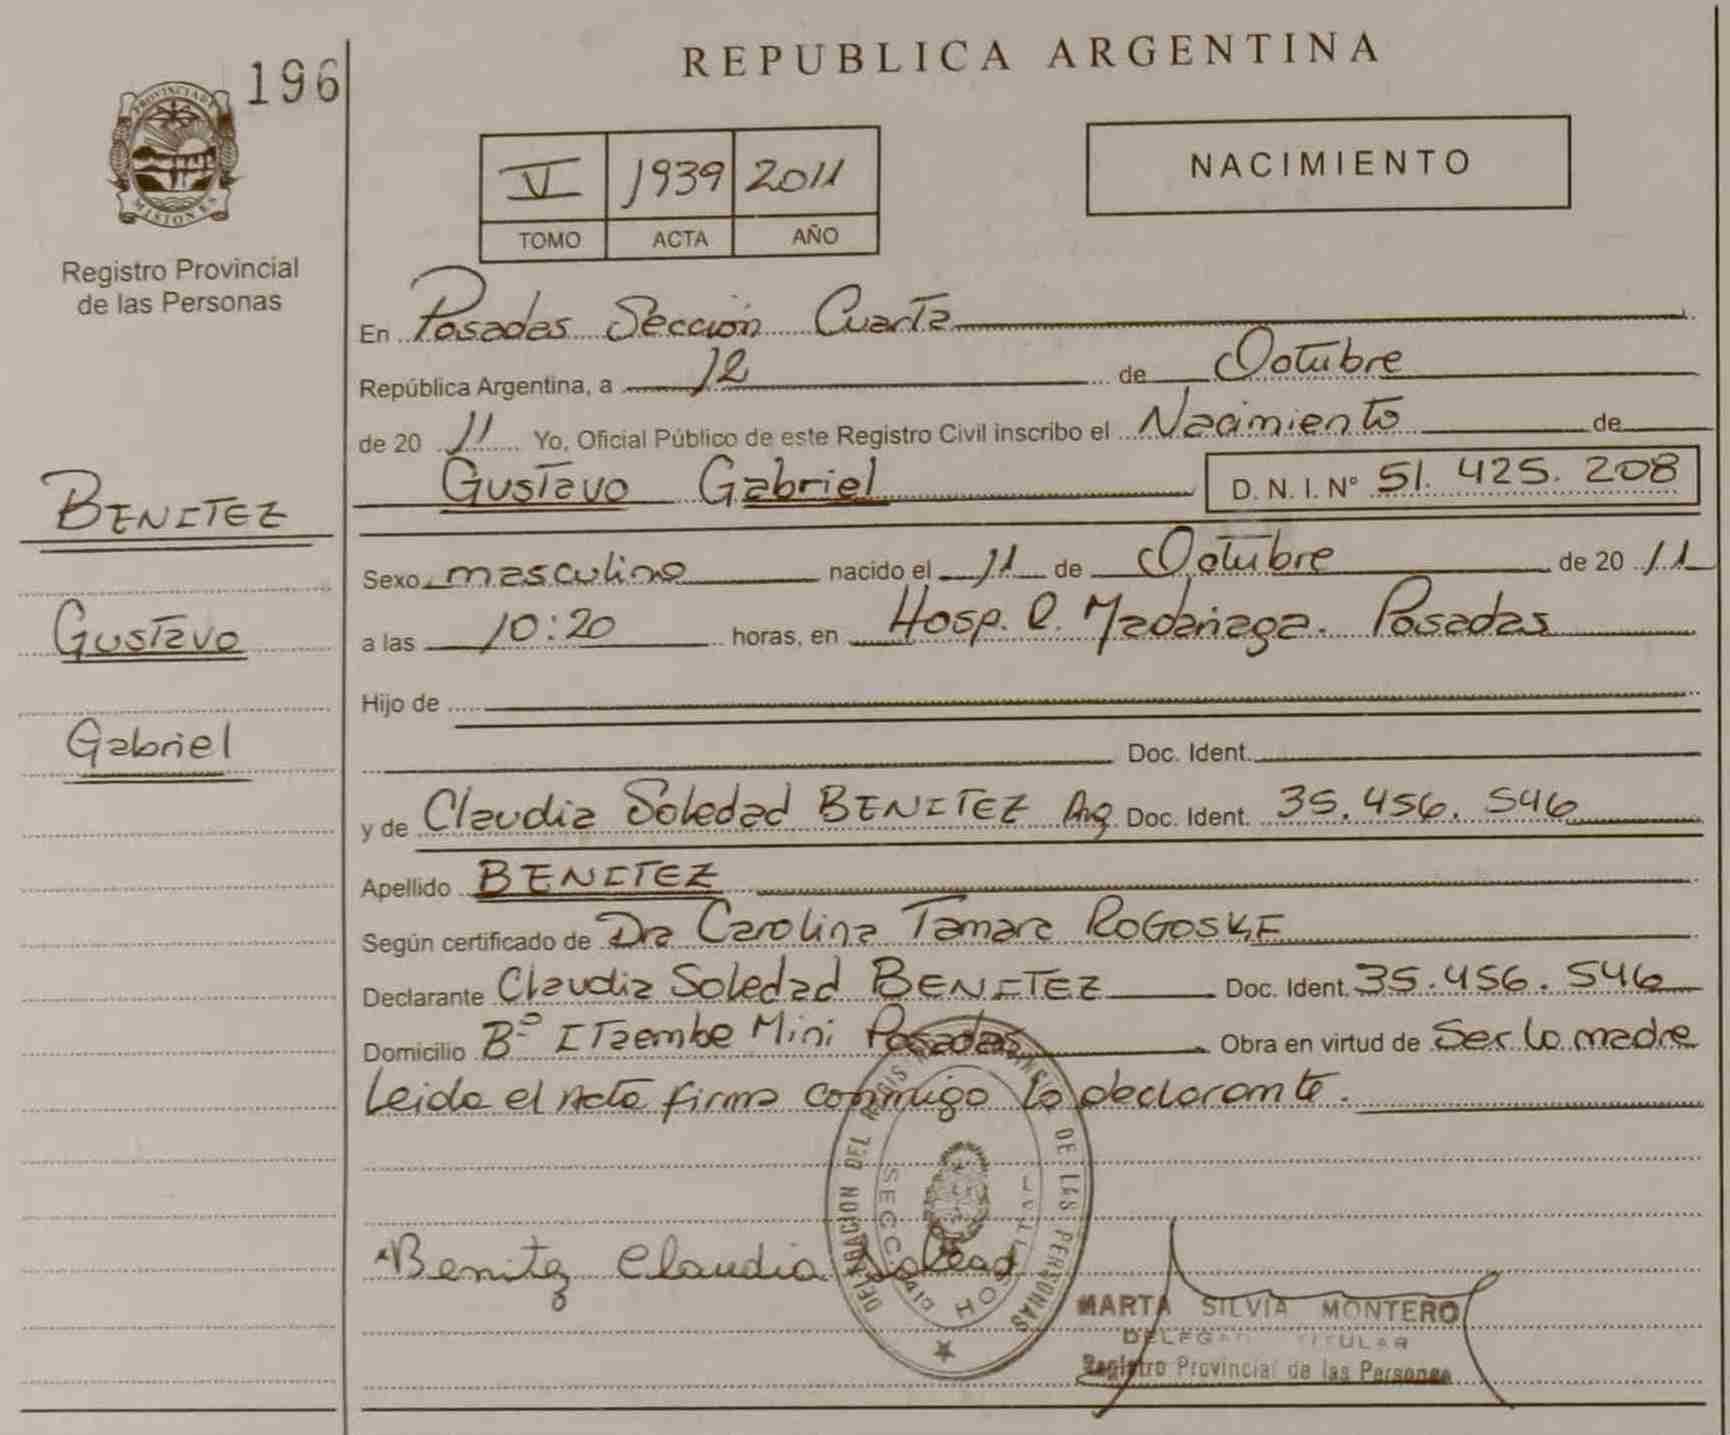 196
REPUBLICA ARGENTINA
PROVINCIA DE
MISIONES
Registro Provincial
de las Personas
VI 1939 2011
TOMO ACTA AÑO
NACIMIENTO
En Posadas Sección Cuarta
República Argentina, a 12 de Octubre
de 20 11 Yo, Oficial Público de este Registro Civil inscribo el Nacimiento de
Gustavo Gabriel D. N. I. N° 51. 425. 208
BENITEZ
Gustavo
Gabriel
Sexo masculino nacido el 11 de Octubre de 20 11
a las 10:20 horas, en Hosp. R. Madariaga. Posadas
Hijo de
Doc. Ident.
y de Claudia Soledad BENITEZ Arg Doc. Ident. 35. 456. 546
Apellido BENITEZ
Según certificado de Dra Carolina Tamara ROGOSKE
Declarante Claudia Soledad BENITEZ Doc. Ident. 35. 456. 546
Domicilio Bº ITaembe Mini Posadas Obra en virtud de Ser la madre
Leida el Acta firma conmigo la declarante.
Benitez Claudia Soledad
DELEGACION DEL REGISTRO DE LAS PERSONAS
SECC
MARTA SILVIA MONTERO
DELEGADO TITULAR
Registro Provincial de las Personas